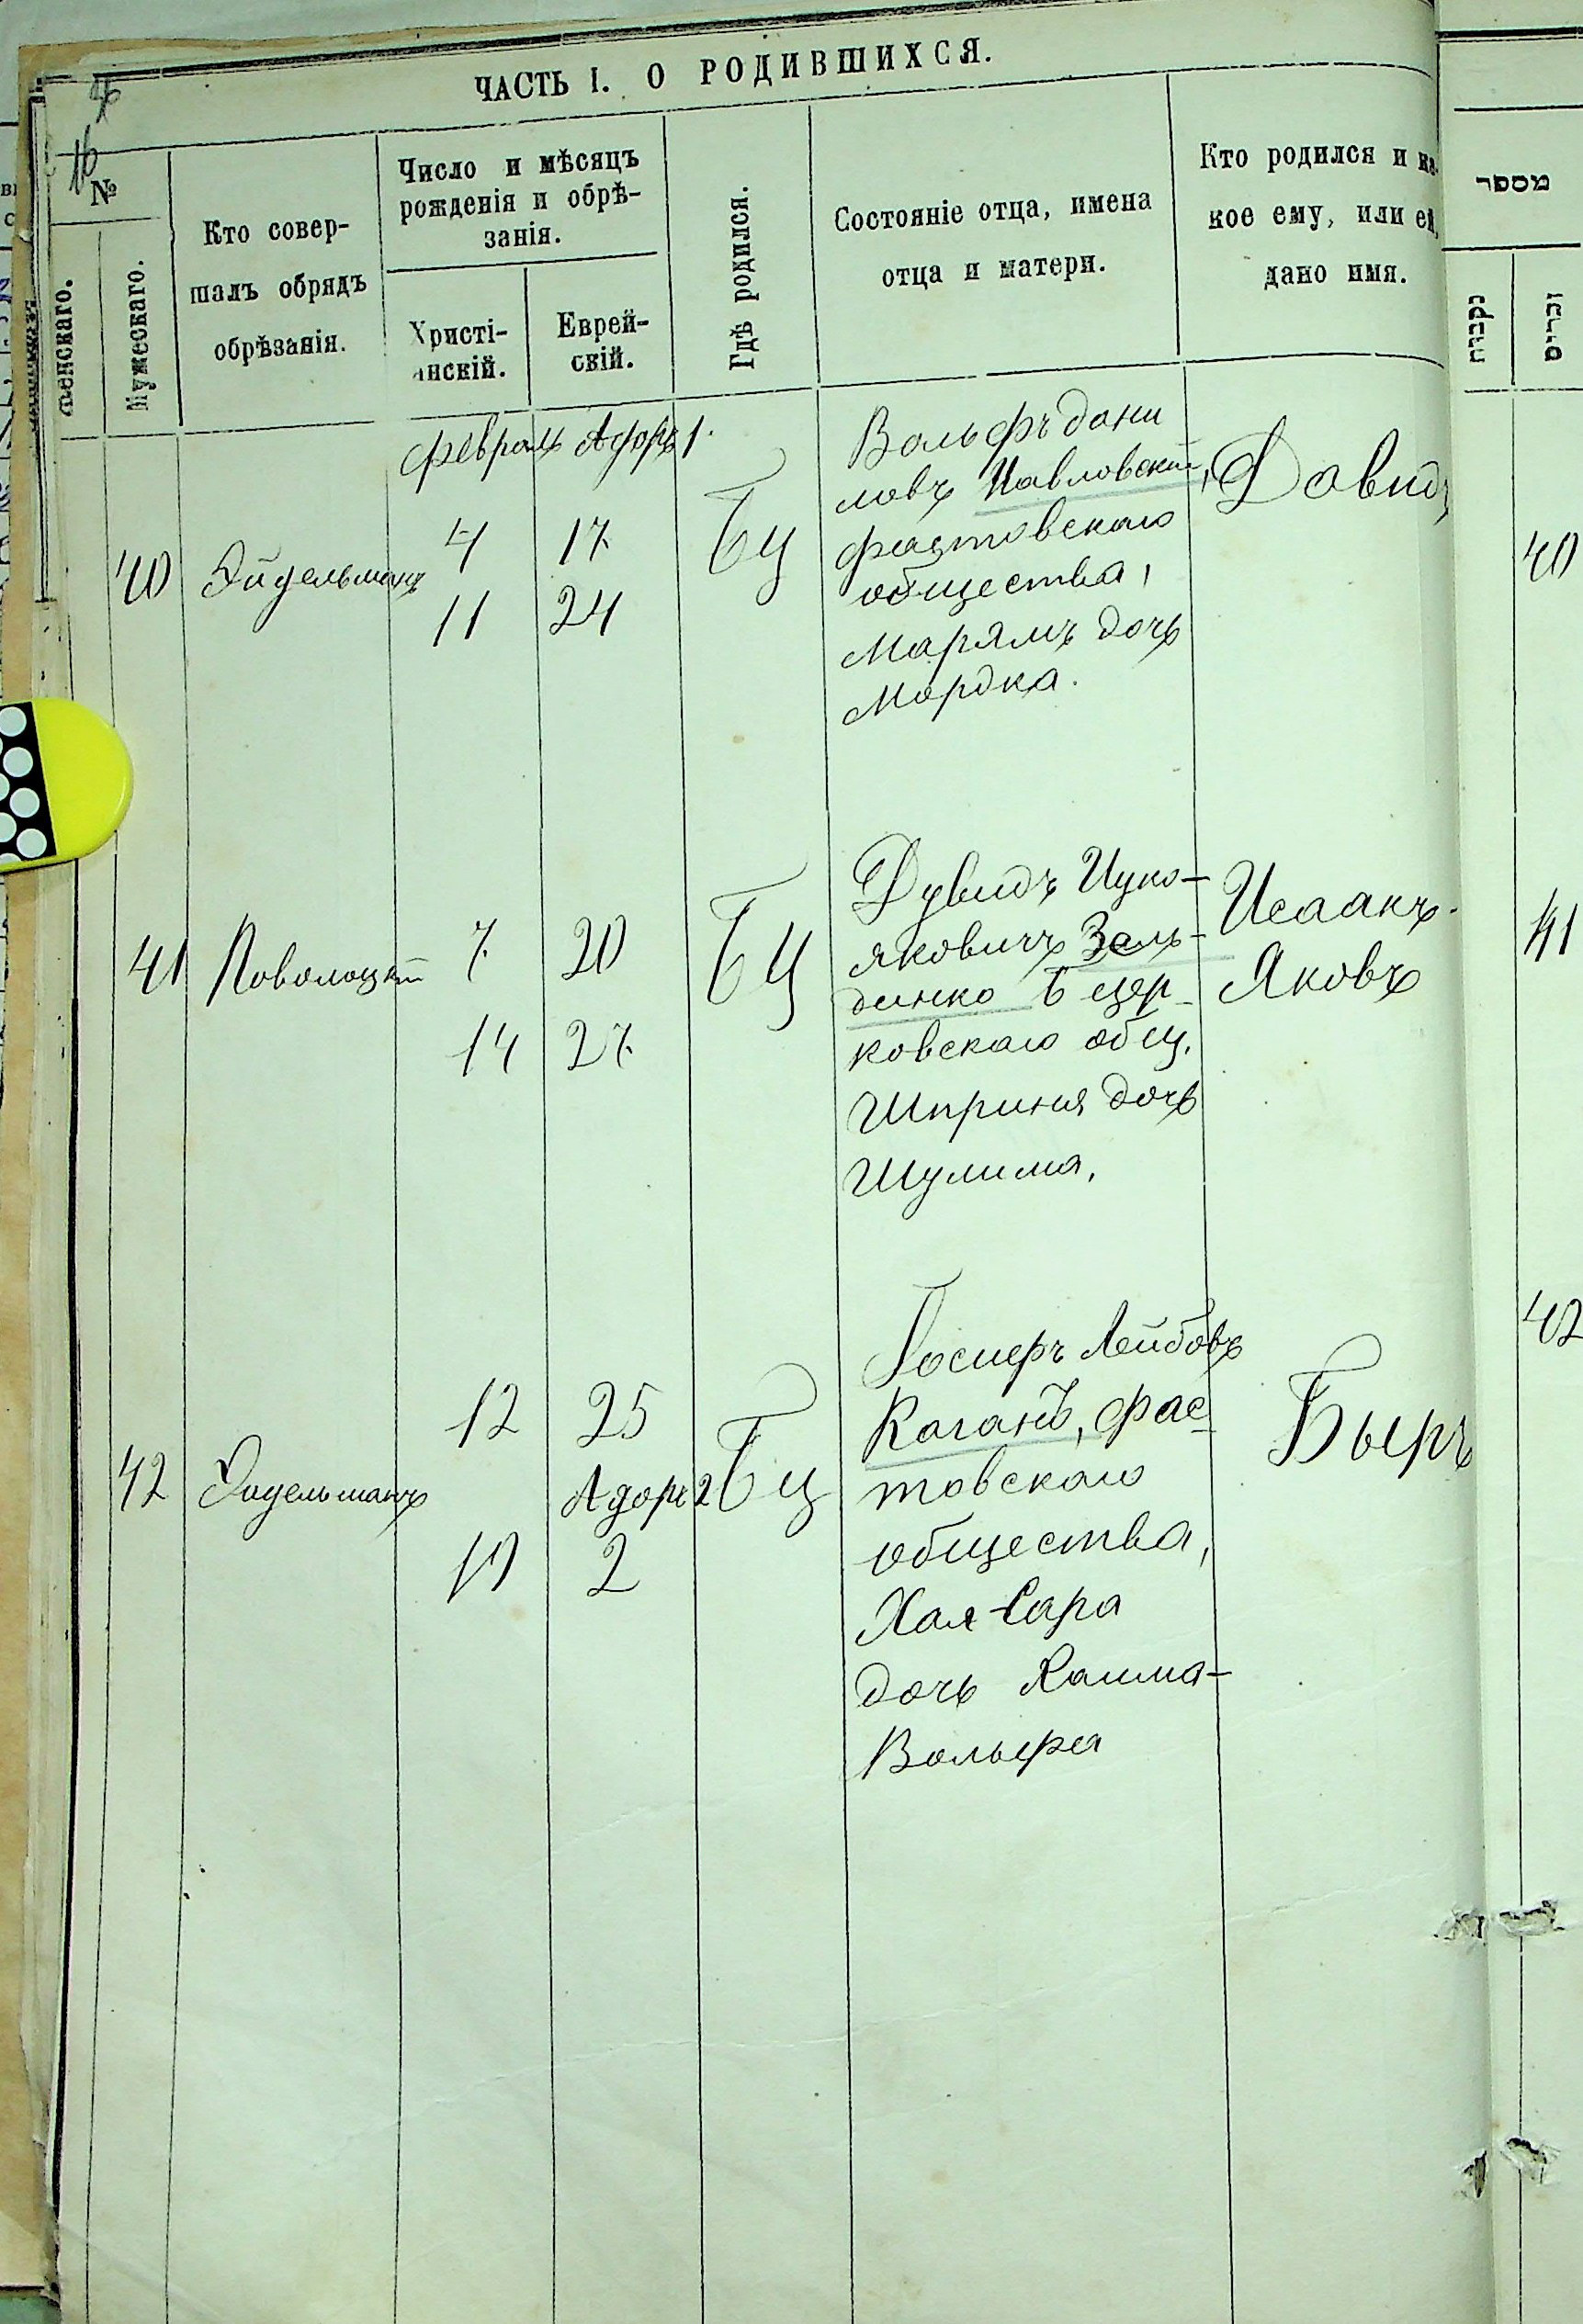 ЧАСТЬ I. О РОДИВШИХСЯ.
№
Женскаго.
Мужескаго.
Кто совер-
шалъ обрядъ
обрѣзанія.
Число и мѣсяцъ
рожденія и обрѣ-
занія.
Христі-
анскій.
Еврей-
скій.
Гдѣ родился.
Состояніе отца, имена
отца и матери.
Кто родился и ка-
кое ему, или ей,
дано имя.
מספר
נקבות
זכרים
Февраль Адоръ 1.
40
Эйдельманъ
4 17
11 24
БЦ
Вольфъ Дани
ловъ Павловскій,
фастовскаго
общества,
Марямъ дочь
Мордка.
Довидъ
40
41
Поволоцкій
7 20
14 27
БЦ
Дувидъ Ицко-
яковичъ Зель-
динко Б цер-
ковскаго общ.
Шприня дочь
Шулима,
Исаакъ-
Яковъ
41
42
Эйдельманъ
12 25
Адоръ 2
19 2
Бц
Іосиеръ Лейбовъ
Каганъ, фас-
товскаго
общества,
Хая-Сара
дочь Калма-
Вольфа
Быръ
42